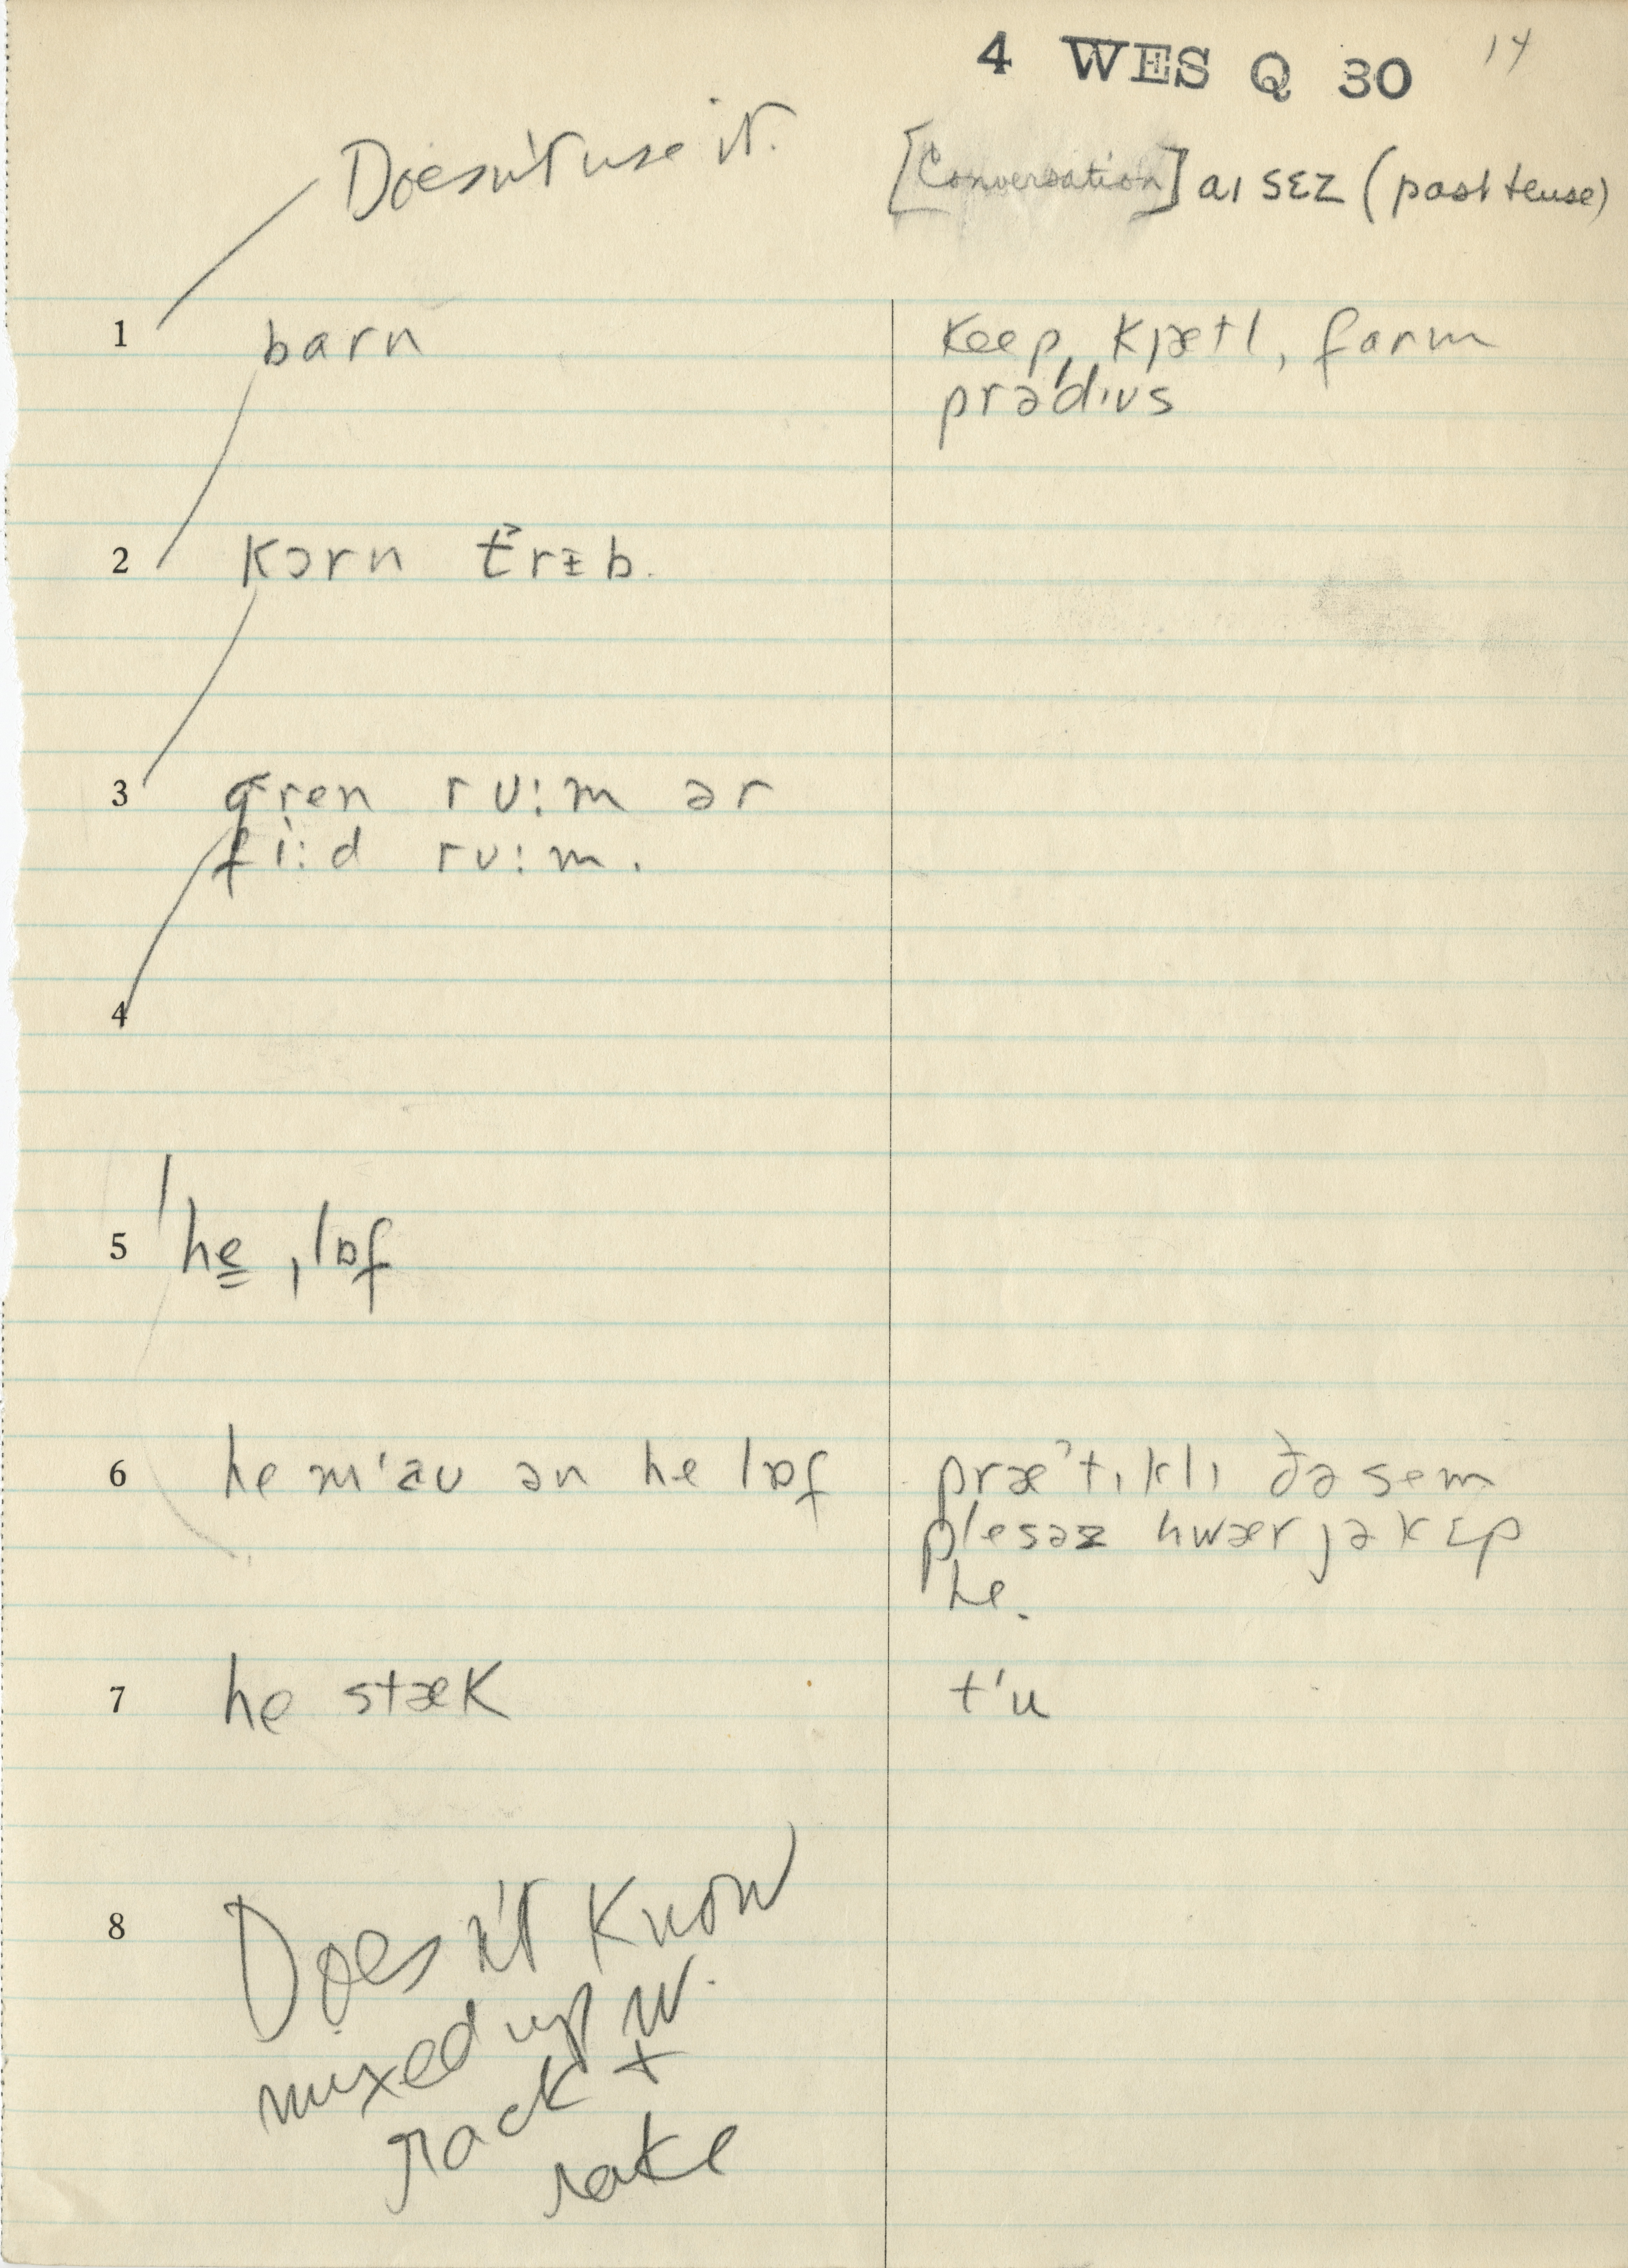 4 WES Q 30 14
Doesn't use it.
[Conversation] aɪ sɛz (past tense)
1 barn
keep, kjætl, farm
prəˈdɪus
2 kɔrn t̆rɪb.
3 gren ru:m ər
fi:d ru:m.
4
5 ˈhe ˌlɒf
6 he mˈau ən he lɒf
præˈtɪklɪ ðə sem
plesəz hwær jə kɛp
he.
7 he stæk
tˈu
8 Doesn't know
mixed up w.
rack +
rake